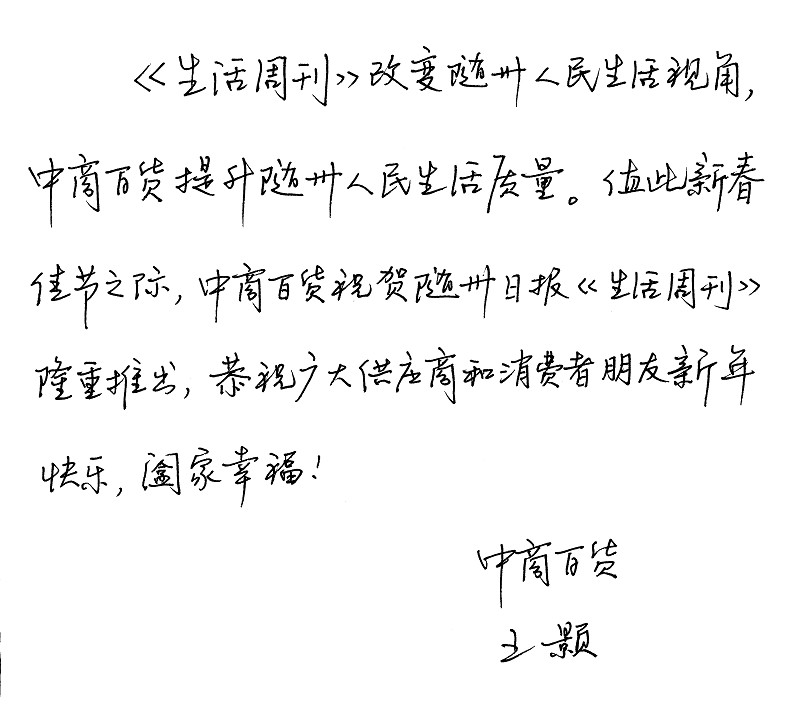 《生活周刊》改变随州人民生活视角，
中商百货提升随州人民生活质量。值此新春
佳节之际，中商百货祝贺随州日报《生活周刊》
隆重推出，恭祝广大供应商和消费者朋友新年
快乐，阖家幸福！
中商百货
王颢